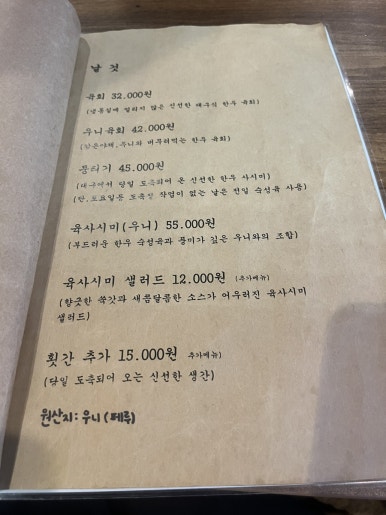 날 것
육회 32.000원
(냉동실에 얼리지 않은 신선한 대구식 한우 육회)
우니육회 42.000원
(감은야채,우니와 버무려먹는 한우 육회)
뭉티기 45.000원
(대구에서 당일 도축되어 온 신선한 한우 사시미)
(단,토요일등 도축장 작업이 없는 날은 전일 숙성육 사용)
육사시미(우니) 55.000원
(부드러운 한우 숙성육과 풍미가 깊은 우니와의 조합)
육사시미 샐러드 12.000원 (추가메뉴)
(향긋한 쑥갓과 새콤달콤한 소스가 어우러진 육사시미
샐러드)
횟간 추가 15.000원 추가메뉴)
(당일 도축되어 오는 신선한 생간)
원산지: 우니 (페루)